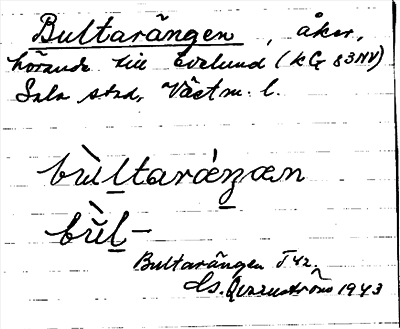 Bultarängen, åker,
hörande till Evelund (kG 83NV)
Sala stad, Västm. l.
bùl̲taráŋæn
bùl̲-
Bultarängen T42.
Cs. Qvarnström 1943